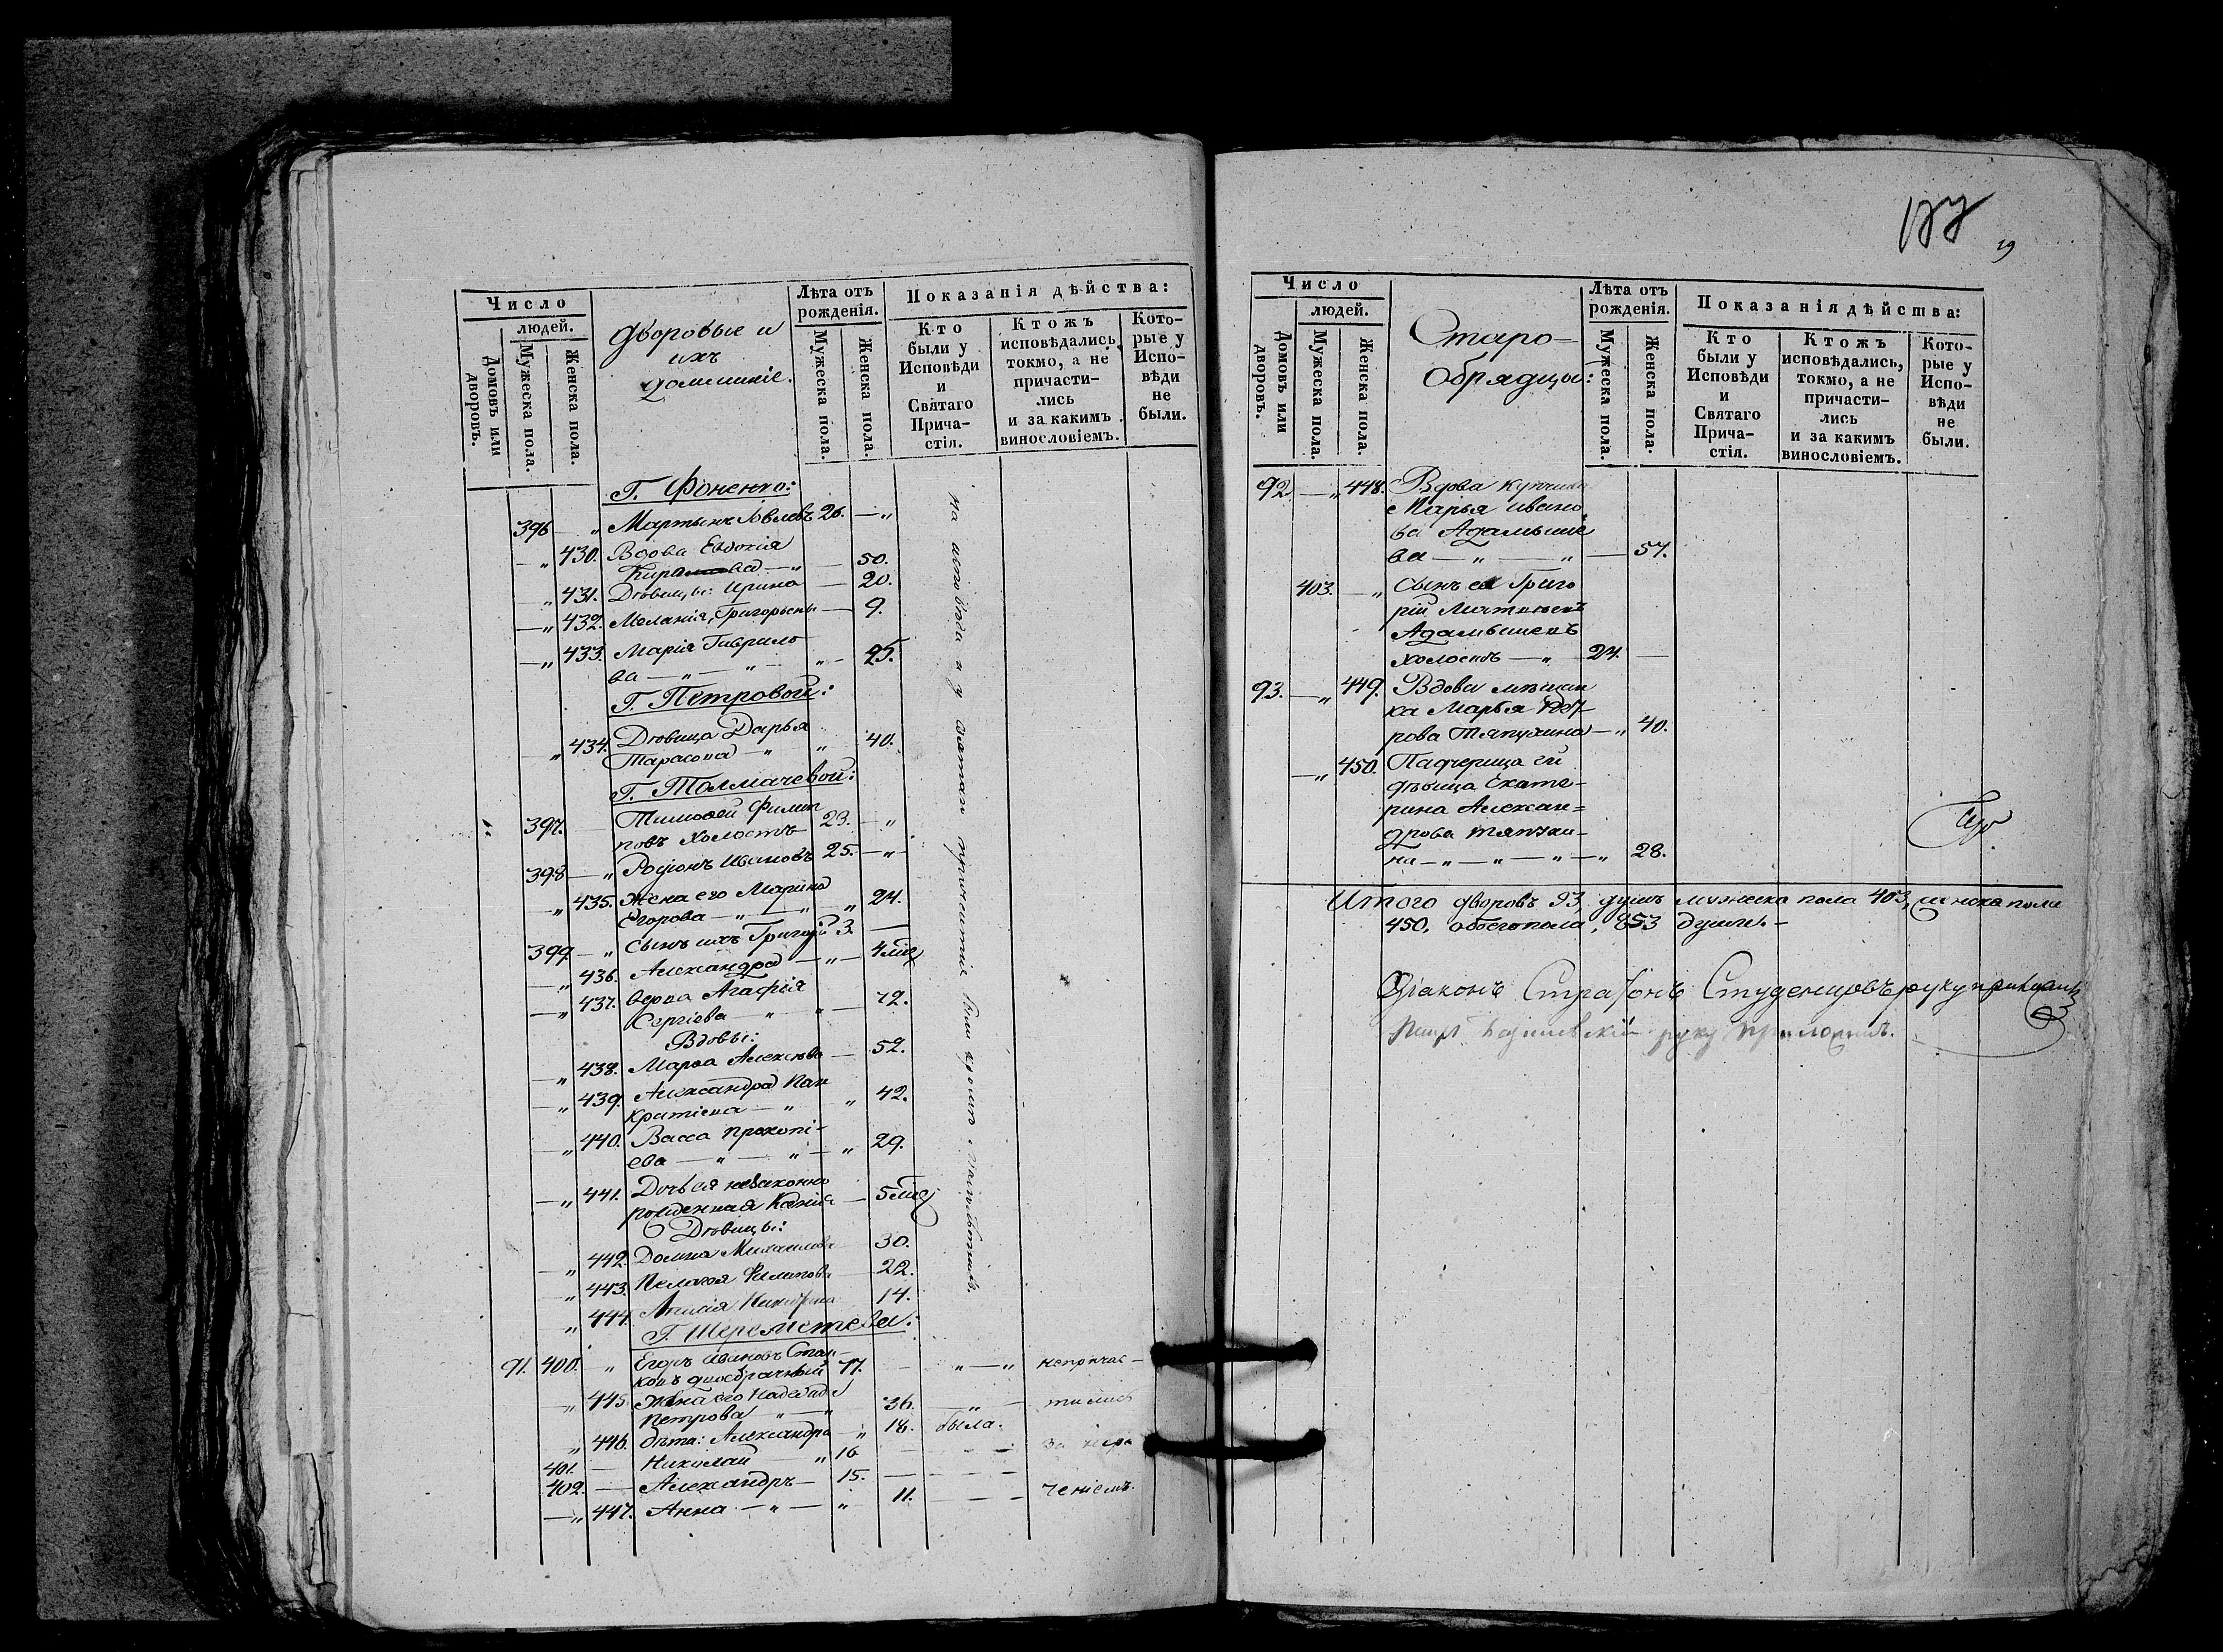 Число
людей.
Домовъ или дворовъ.
Мужеска пола.
Женска пола.
Дворовые и
ихъ
домашніе.
Лѣта отъ
рожденія.
Мужеска пола.
Женска пола.
Показанія дѣйства:
Кто
были у
Исповѣди
и
Святаго
Прича-
стія.
Ктожъ
исповѣдались,
токмо, а не
причасти-
лись
и за какимъ
винословіемъ.
Кото-
рые у
Испо-
вѣди
не
были.
Г. Фоненко:
396 — „ Мартынъ Іовлевъ 26. — „
— „ 430. Вдова Евдокія
— 50.
„ 431. Дѣвицы: Ирина — 20.
— „ 432. Меланія, Григорьевы — 9.
— „ 433. Марія Гаврило
ва — „ — „ — „ — 25.
Г. Петровой:
„ 434. Дѣвица Дарья
Тарасова — „ „ 40.
Г. Толмачевой:
397. Тимофей Филип
повъ холостъ 23. — „
398 — „ Родіонъ Ивановъ 25. — „ —
— „ 435. Жена его Марина
Егорова — „ — „ „ 24.
399. — „ Сынъ ихъ Григорій 3. —
— „ 436. Александра — „ — 4 мѣс
— „ 437. вдова Агафія
Сергіева — „ „ — 72.
Вдовы:
— „ 438. Марѳа Алексѣева — 52.
— „ 439. Александра Пан
кратіева — „ „ 42.
— „ 440. Васса Прокопі-
ева — „ — „ — „ 29.
— „ 441. Дочь ея незаконно
рожденная Ксенія — 5 мѣс
Дѣвицы:
— „ 442. Домна Михаилова 30.
„ 443. Пелагея Филипова — 22.
„ 444. 14.
Г. Шереметева:
91. 400. „ Егоръ Ивановъ Стан-
ковъ двоебрачный 77. — „ — „ непричас-
— „ 445. Жена его Надежда
Петрова „ — „ 36. — „ — тились
„ 446. дѣти: Александра — „ 18. была.
401. — Николай — „ 16 — — за
402. — Александръ — 15. — — — —
— „ 447. Анна — „ — „ 11. — — — ченіемъ.
на исповѣди и у святаго причастія были кромѣ

177
19
Число
людей.
Домовъ или дворовъ.
Мужеска пола.
Женска пола.
Старо-
обрядцы:
Лѣта отъ
рожденія.
Мужеска пола.
Женска пола.
Показанія дѣйства:
Кто
были у
Исповѣди
и
Святаго
Прича-
стія.
Ктожъ
исповѣдались,
токмо, а не
причасти-
лись
и за какимъ
винословіемъ.
Кото-
рые у
Испо-
вѣди
не
были.
92. — „ 448. Вдова купчиха
Марья Ивано
ва Адамыше
ва — „ — „ — 57.
403. — „ Сынъ ея Григо
рій
Адамышевъ
холостъ — „ 24. —
93. — „ 449. Вдова мѣщан
ка Марья Пет
рова Тяпухина — „ 40.
— „ 450. Падчерица ей
дѣвица Екате-
рина Алексан=
дрова Тяпухи-
на — „ — „ — „ — „ 28.
Итого дворовъ 93, душъ мужеска пола 403, женска пола
450, обоего пола, 853 души. —
Діаконъ Студенцовъ руку приложилъ
руку приложилъ.